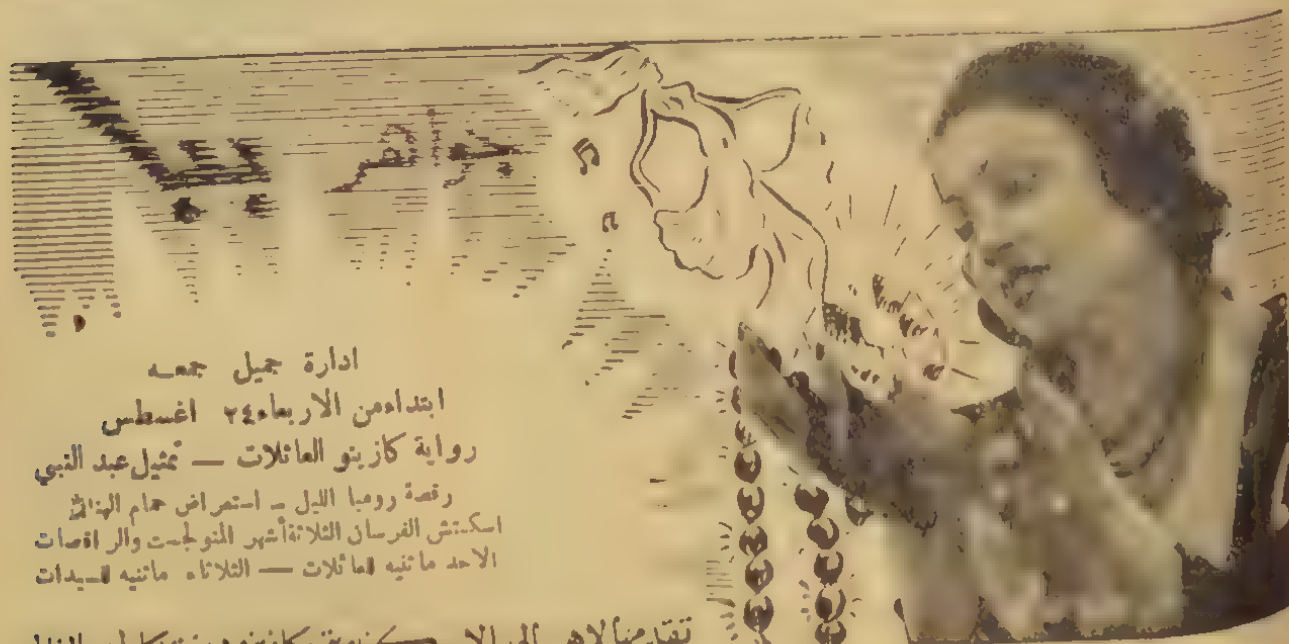 ادارة جميل جمعه
ابتداء من الاربعاء ٢٤ اغسطس
رواية كازينو العائلات — تمثيل عبد النبي
رقصة رومبا الليل — استعراض حمام الهنا
اسكتش الفرسان الثلاثة أشهر المنولجست والراقصات
الاحد ماتنيه للعائلات — الثلاثاء ماتنيه للسيدات